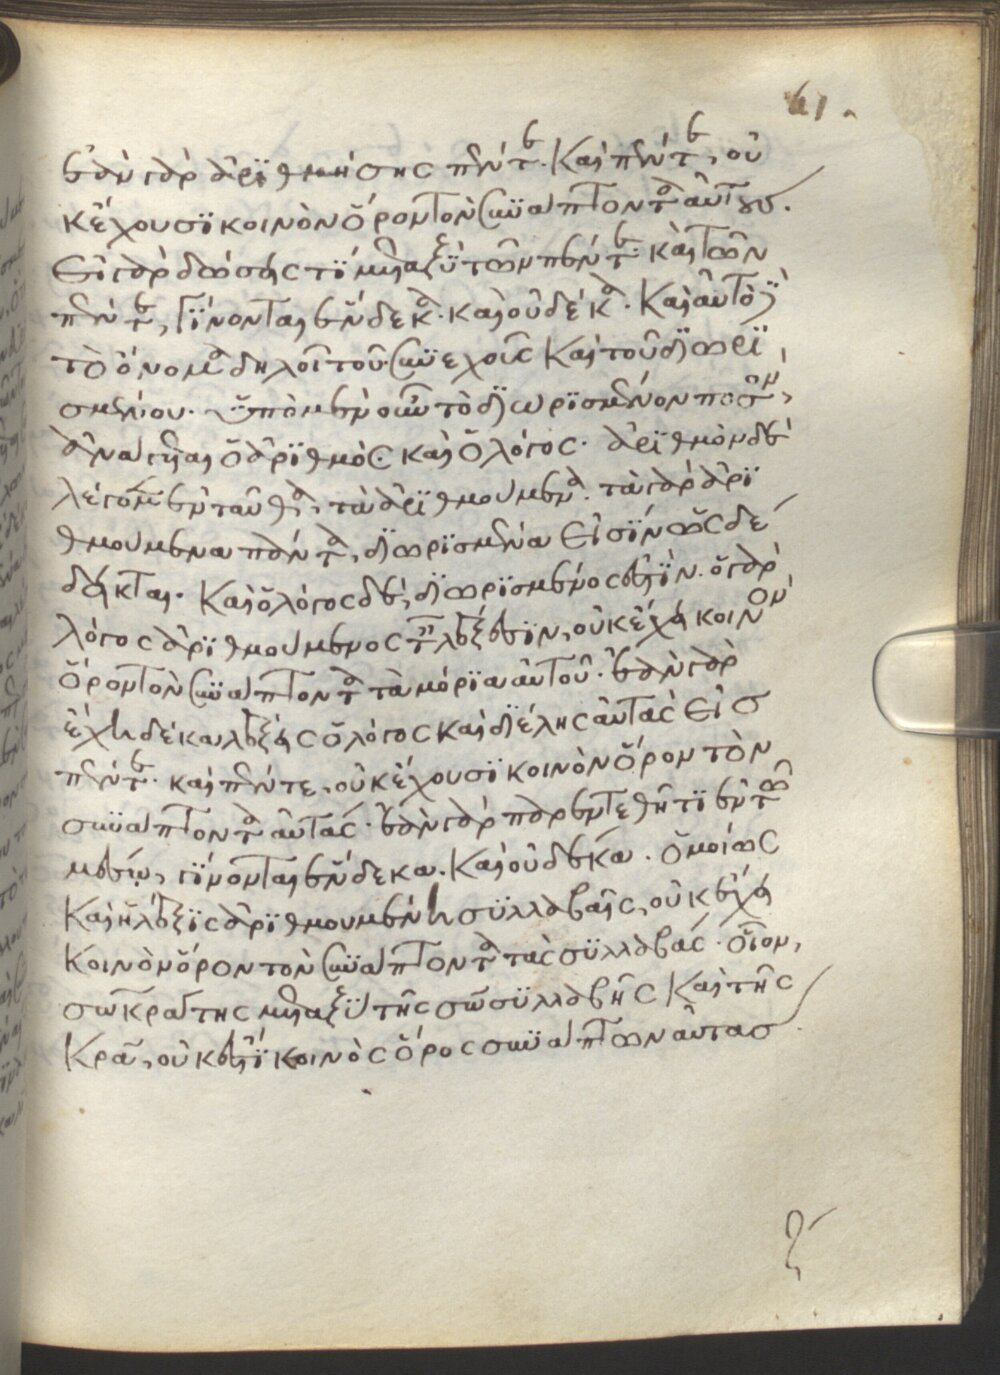 61.
ἐὰν γὰρ ἀρϊθμήσης πέντε. Καὶ πέντε, οὐ
κ ἔχουσϊ κοινὸν ὅρον τὸν συνάπτοντα αὐτούς.
Εἰ γὰρ δώσεις τϊ μεταξὺ τῶν πέντε καὶ τῶν
πέντε, γΐνονται ἕνδεκα. καὶ οὐ δέκα. Καὶ αὐτὸ
τὸ ὄνομα δηλοῖ τοῦ συνεχοῦς Καὶ τοῦ διωρϊ
σμένου. Ὑπὸ μὲν οὖν τὸ διωρϊσμένον ποσὸν,
ἀνάγεται ὁ ἀρϊθμὸς. καὶ ὁ λόγος. ἀρϊθμὸν δὲ
λέγομεν ἐνταῦθα, τὰ ἀρϊθμούμενα. τὰ γὰρ ἀρϊ
θμούμενα πάντα, διωρϊσμένα Εἰσϊν ὡς δέ
δεικται. Καὶ ὁ λόγος δὲ, διωρϊσμένος ἐστὶν. ὁ γὰρ
λόγος ἀρϊθμούμενος τῆ λέξει ἐστϊν, οὐκ ἔχει κοινὸν
ὅρον τὸν συνάπτοντα τὰ μόρϊα αὐτοῦ. ἐὰν γὰρ
ἔχη δέκα λέξεις ὁ λόγος καὶ διέλης αὐτὰς Εἰσ
πέντε. καὶ πέντε, οὐκ ἔχουσϊ κοινὸν ὅρον τὸν
συνάπτοντα αὐτάς. ἐὰν γὰρ παρεντεθῆ τϊ ἐν τῶ
μέσω, γίνονται ἕνδεκα. Καὶ οὐ δέκα. Ὁμοίως
Καὶ ἡ λέξϊς ἀρϊθμουμένη συλλαβαῖς, οὐκ ἔχει
Κοινὸν ὅρον τὸν συνάπτοντα τὰς συλλαβάς. οἷον,
σωκράτης μεταξὺ τῆς σω συλλαβῆς Καὶ τῆς
Κρα, οὐκ ἔστϊ κοινὸς ὅρος συνάπτων αὐτασ